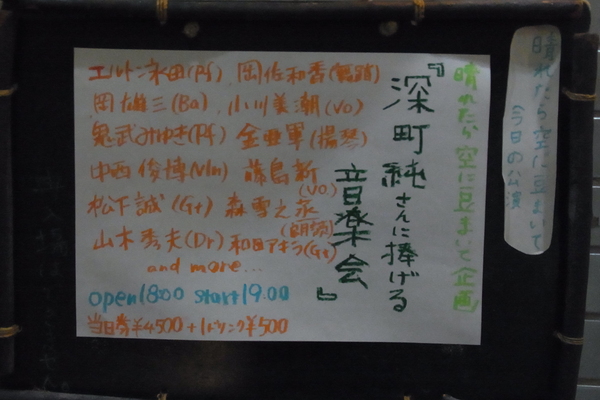 晴れたら空に豆まいて
今日の公演
晴れたら空に豆まいて企画
『深町純さんに捧げる
音楽会』
エルトン永田(Pf) 岡佐和香(舞踏)
岡雄三(Ba) 小川美潮(Vo)
鬼武みゆき(Pf) 金亜軍(揚琴)
中西俊博(Vln) 藤島新(Vo)
松下誠(Gt) 森雪之丞(朗読)
山木秀夫(Dr) 和田アキラ(Gt)
and more...
open18:00 start19:00
当日券¥4500+1ドリンク¥500